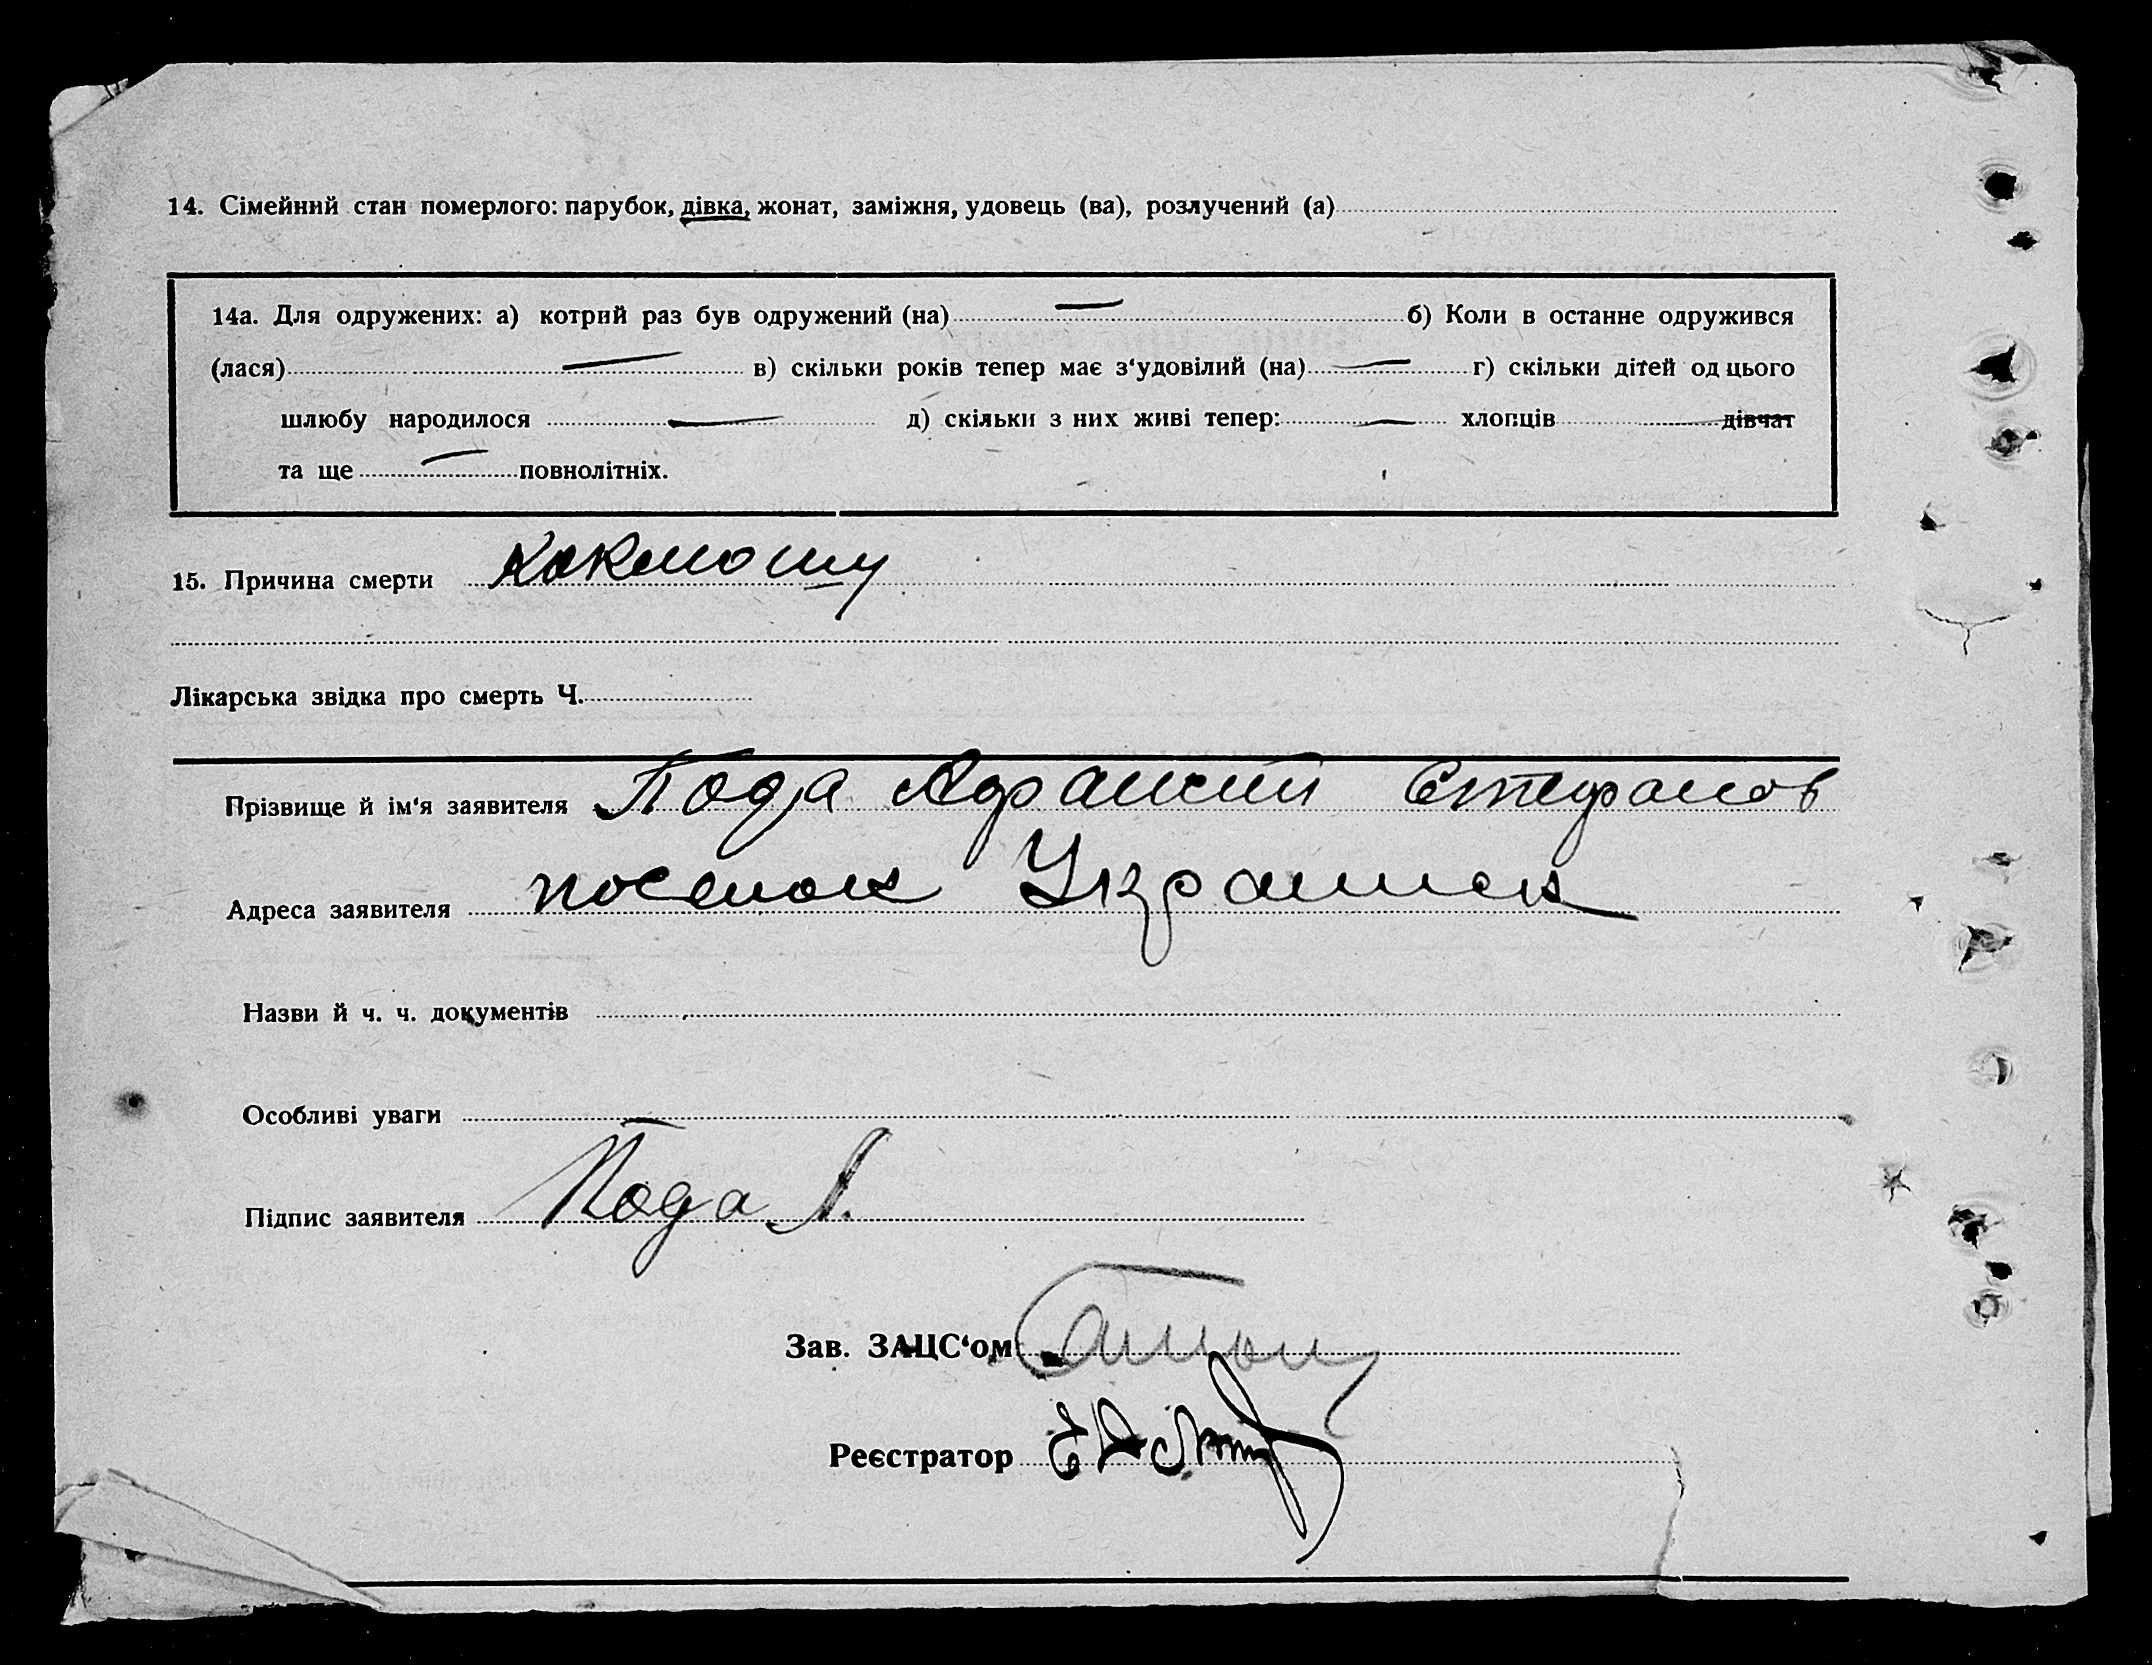 14. Сімейний стан померлого: парубок, дівка, жонат, заміжня, удовець (ва), розлучений (а)
14а. Для одружених: а) котрий раз був одружений (на) — б) Коли в останне одружився
(лася) — в) скільки років тепер має з‘удовілий (на) — г) скільки дітей од цього
шлюбу народилося — д) скільки з них живі тепер: — хлопців — дівчат
та ще — повнолітніх.
15. Причина смерти Коклюшу
Лікарська звідка про смерть Ч.
Прізвище й ім‘я заявителя Пода Афанасий Стефанов
Адреса заявителя поселок Украинск
Назви й ч. ч. документів
Особливі уваги
Підпис заявителя Пода А.
Зав. ЗАЦС‘ом
Реєстратор